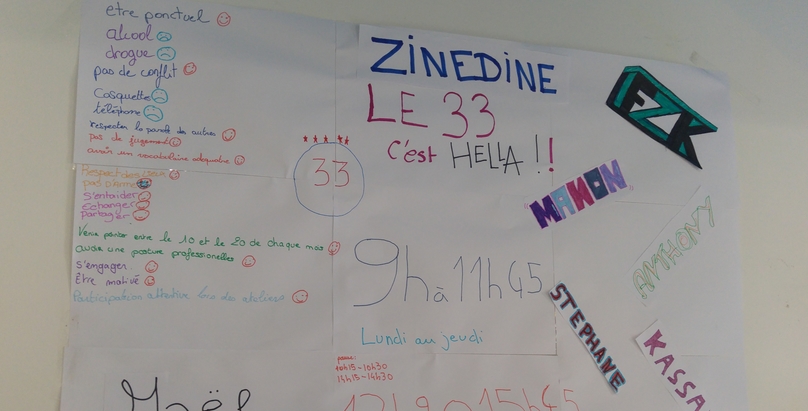 être ponctuel
alcool
drogue
pas de conflit
Casquette
téléphone
respecter la parole des autres
pas de jugement
avoir un vocabulaire adéquate
Respect des lieux
pas d'arme
S'entraider
échanger
partager
Venir pointer entre le 10 et le 20 de chaque mois
avoir une posture professionelles
s'engager
Être motivé
Participation attentive lors des ateliers
ZINEDINE
LE 33
c'ést HELLA !!
33
FZK
"MANON"
ANTHONY
9h à 11h45
Lundi au jeudi
STEPHANE
KASSA
pause:
10h15-10h30
14h15-14h30
15h45